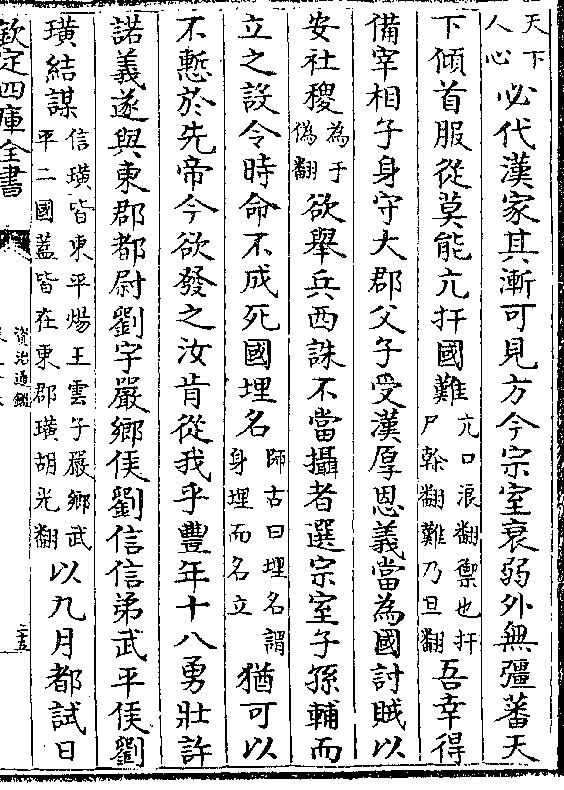 天下人心必代漢家其漸可見方今宗室衰弱外無彊蕃天
下傾首服從莫能亢扞國難亢口浪翻禦也扞尸榦翻難乃旦翻吾幸得
備宰相子身守大郡父子受漢厚恩義當為國討賊以
安社稷為于偽翻欲舉兵西誅不當攝者選宗室子孫輔而
立之設令時命不成死國埋名師古曰埋名謂身埋而名立猶可以
不慙於先帝今欲發之汝肯從我乎豐年十八勇壯許
諾義遂與東郡都尉劉宇嚴鄉侯劉信信弟武平侯劉
璜結謀信璜皆東平煬王雲子嚴鄉武平二國蓋皆在東郡璜胡光翻以九月都試日
欽定四庫全書
資治通鑑